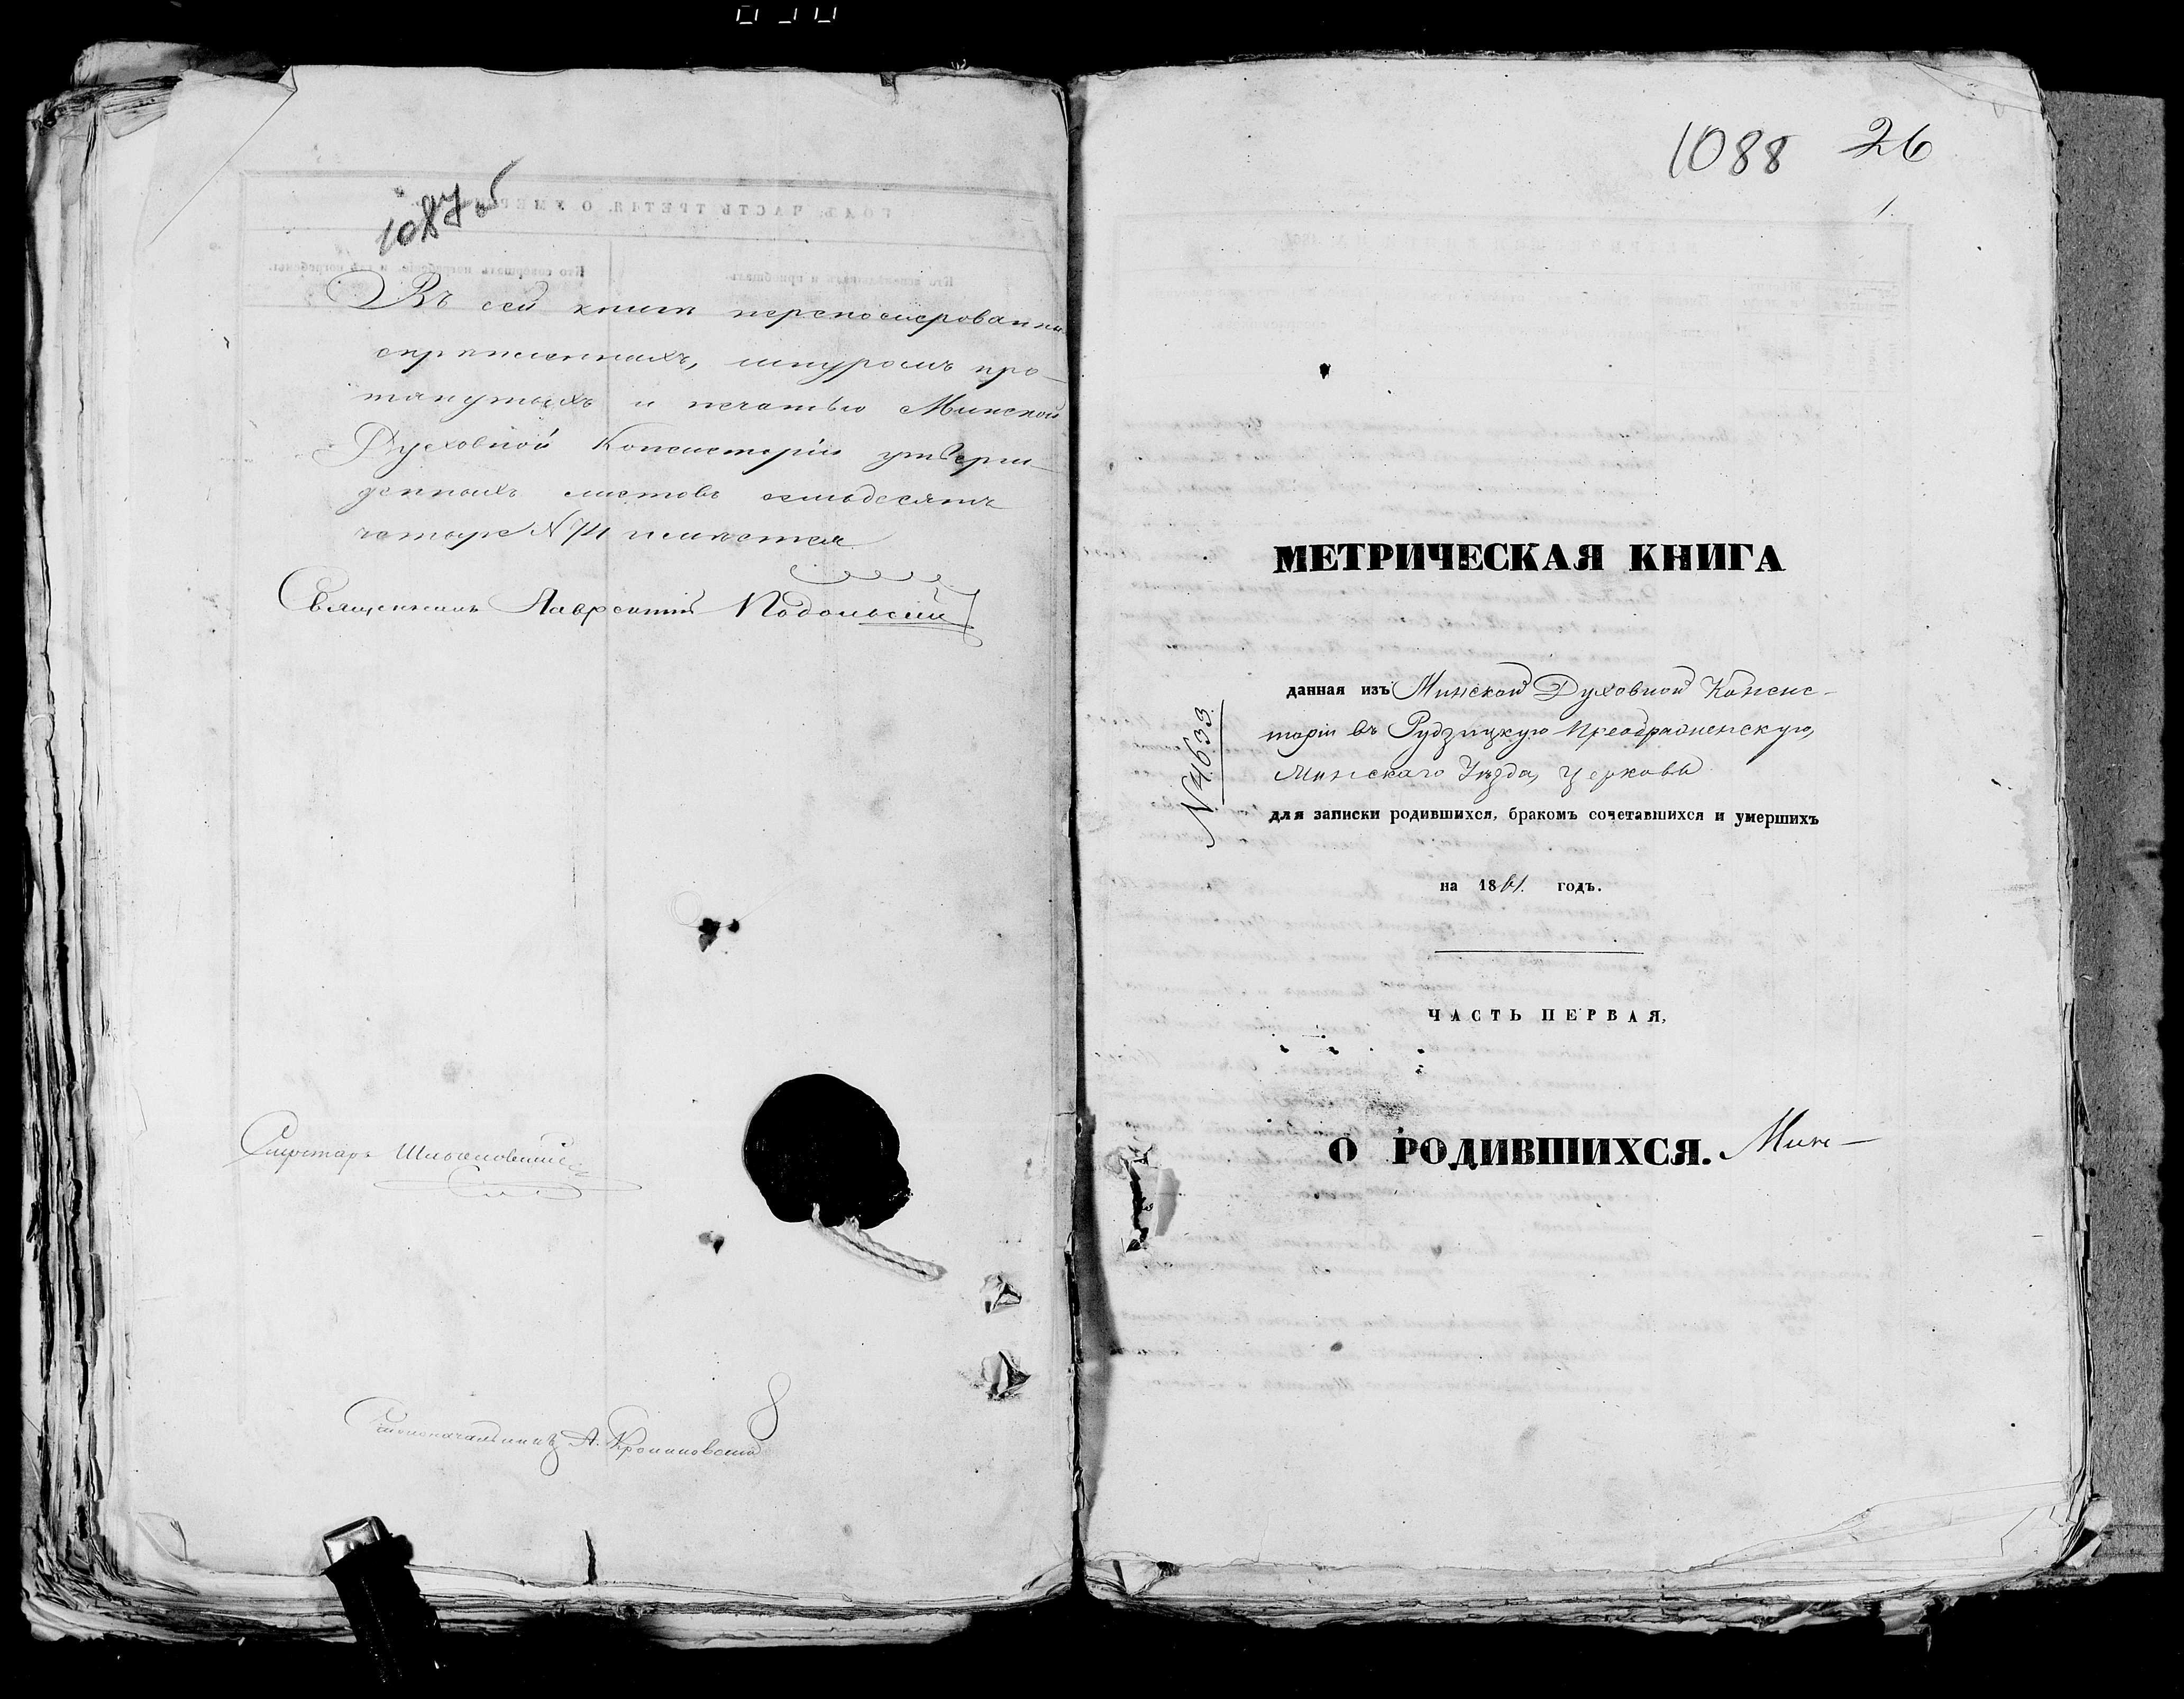 1087 об
Въ сей книги перекосисрованныхъ
скрѣпленныхъ, шнуромъ про-
тянутыхъ и печатью Минской
Духовной Консисторіи утверж-
денныхъ листовъ семьдесятъ
четыре N 74 имѣется
Священникъ Лаврентій Подольскій
Секретарь
Столоначальникъ А.
1088 26
1.
МЕТРИЧЕСКАЯ КНИГА
данная изъ Минской Духовной Консис-
торіи въ Рудзицкую Преображенскую,
Минскаго Уѣзда, церковь
N 4633
для записки родившихся, бракомъ сочетавшихся и умершихъ
на 1861 годъ.
ЧАСТЬ ПЕРВАЯ,
О РОДИВШИХСЯ. Мин-